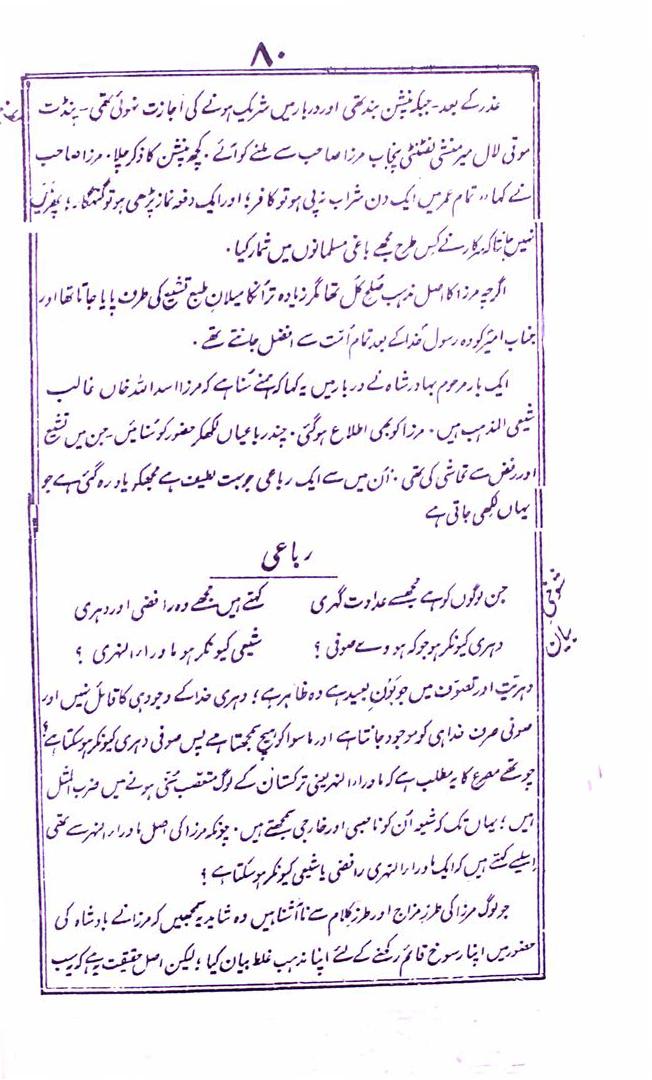 ۸۰
غدر کے بعد۔ جبکہ پنشن بند تھی اور دربار میں شریک ہونے کی اجازت نہوئی تھی۔ پنڈت
موتی لال میر منشی لفٹنٹی پنجاب مرزا صاحب سے ملنے کو آئے۔ کچھ پنشن کا ذکر چلا۔ مرزا صاحب
نے کہا "تمام عمر میں ایک دن شراب نہ پی ہو تو کافر؛ اور ایک دفعہ نماز پڑھی ہو تو گنہگار۔؛ پھر میں
نہیں جانتا کہ سرکار نے کس طرح مجھے باغی مسلمانوں میں شمار کیا۔
اگرچہ مرزا کا اصل مذہب صلح کل تھا مگر زیادہ تر انکا میلانِ طبع تشیّع کی طرف پایا جاتا تھا اور
جناب امیرؑ کو وہ رسولِ خدا کے بعد تمام اُمّت سے افضل جانتے تھے۔
ایک بار مرحوم بہادر شاہ نے دربار میں یہ کہا کہ ہمنے سُنا ہے کہ مرزا اسد اللہ خاں غالب
شیعی المذہب ہیں۔ مرزا کو بھی اطلاع ہو گئی۔ چند رباعیاں لکھکر حضور کو سنائیں۔ جن میں تشیّع
اور رفض سے تحاشی کی تھی۔ اُن میں سے ایک رباعی جو بہت لطیف ہے مجھکو یاد رہ گئی ہے جو
یہاں لکھی جاتی ہے
رباعی
جن لوگوں کو ہے مجھسے عداوت گہری کہتے ہیں مجھے وہ رافضی اور دہری
دہری کیونکر ہو جو کہ ہووے صوفی؟ شیعی کیونکر ہو ماوراء النہری؟
شوخی
بیان
دہریّت اور تصوّف میں جو بَونِ بعید ہے وہ ظاہر ہے؛ دہری خدا کے وجود ہی کا قائل نہیں اور
صوفی صرف خدا ہی کو موجود جانتا ہے اور ماسوا کو ہیچ سمجھتا ہے پس صوفی دہری کیونکر ہو سکتا ہے؟
چوتھے مصرع کا یہ مطلب ہے کہ ماوراء النہر یعنی ترکستان کے لوگ متعصب سُنّی ہونے میں ضرب المثل
ہیں؛ یہاں تک کہ شیعہ اُن کو ناصبی اور خارجی سمجھتے ہیں۔ چونکہ مرزا کی اصل ماوراء النہر سے تھی
اسلیے کہتے ہیں کہ ایک ماوراء النہری رافضی یا شیعی کیونکر ہو سکتا ہے؟
جو لوگ مرزا کی طرزِ مزاج اور طرزِ کلام سے ناآشنا ہیں وہ شاید یہ سمجھیں کہ مرزا نے بادشاہ کی
حضور میں اپنا رسوخ قائم رکھنے کے لئے اپنا مذہب غلط بیان کیا؛ لیکن اصل حقیقت یہ ہے کہ یہ سب